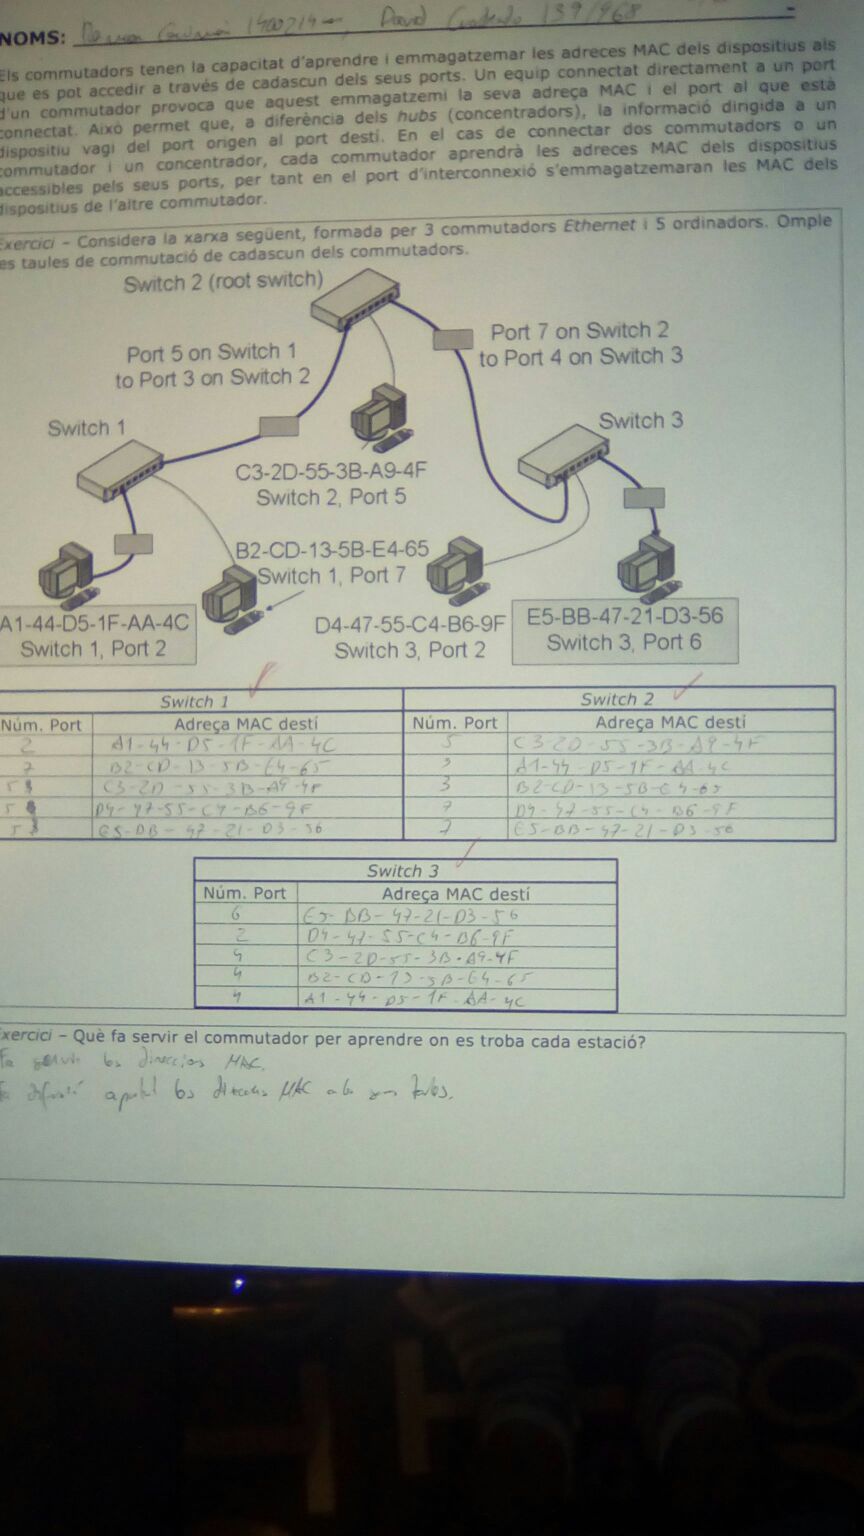 NOMS:
Els commutadors tenen la capacitat d'aprendre i emmagatzemar les adreces MAC dels dispositius als
que es pot accedir a través de cadascun dels seus ports. Un equip connectat directament a un port
d'un commutador provoca que aquest emmagatzemi la seva adreça MAC i el port al que està
connectat. Això permet que, a diferència dels hubs (concentradors), la informació dirigida a un
dispositiu vagi del port origen al port destí. En el cas de connectar dos commutadors o un
commutador i un concentrador, cada commutador aprendrà les adreces MAC dels dispositius
accessibles pels seus ports, per tant en el port d'interconnexió s'emmagatzemaran les MAC dels
dispositius de l'altre commutador.
Exercici – Considera la xarxa següent, formada per 3 commutadors Ethernet i 5 ordinadors. Omple
les taules de commutació de cadascun dels commutadors.
Switch 2 (root switch)
Port 5 on Switch 1
to Port 3 on Switch 2
Port 7 on Switch 2
to Port 4 on Switch 3
Switch 1
Switch 3
C3-2D-55-3B-A9-4F
Switch 2, Port 5
B2-CD-13-5B-E4-65
Switch 1, Port 7
A1-44-D5-1F-AA-4C
Switch 1, Port 2
D4-47-55-C4-B6-9F
Switch 3, Port 2
E5-BB-47-21-D3-56
Switch 3, Port 6
Switch 1 Switch 2
Núm. Port Adreça MAC destí Núm. Port Adreça MAC destí
2 A1-44-D5-1F-AA-4C 5 C3-2D-55-3B-A9-4F
7 B2-CD-13-5B-E4-65 3 A1-44-D5-1F-AA-4C
5 C3-2D-55-3B-A9-4F 3 B2-CD-13-5B-E4-65
5 D4-47-55-C4-B6-9F 7 D4-47-55-C4-B6-9F
5 E5-BB-47-21-D3-56 7 E5-BB-47-21-D3-56
Switch 3
Núm. Port Adreça MAC destí
6 E5-BB-47-21-D3-56
2 D4-47-55-C4-B6-9F
4 C3-2D-55-3B-A9-4F
4 B2-CD-13-5B-E4-65
4 A1-44-D5-1F-AA-4C
Exercici – Què fa servir el commutador per aprendre on es troba cada estació?
Fa servir les direccions MAC.
les MAC